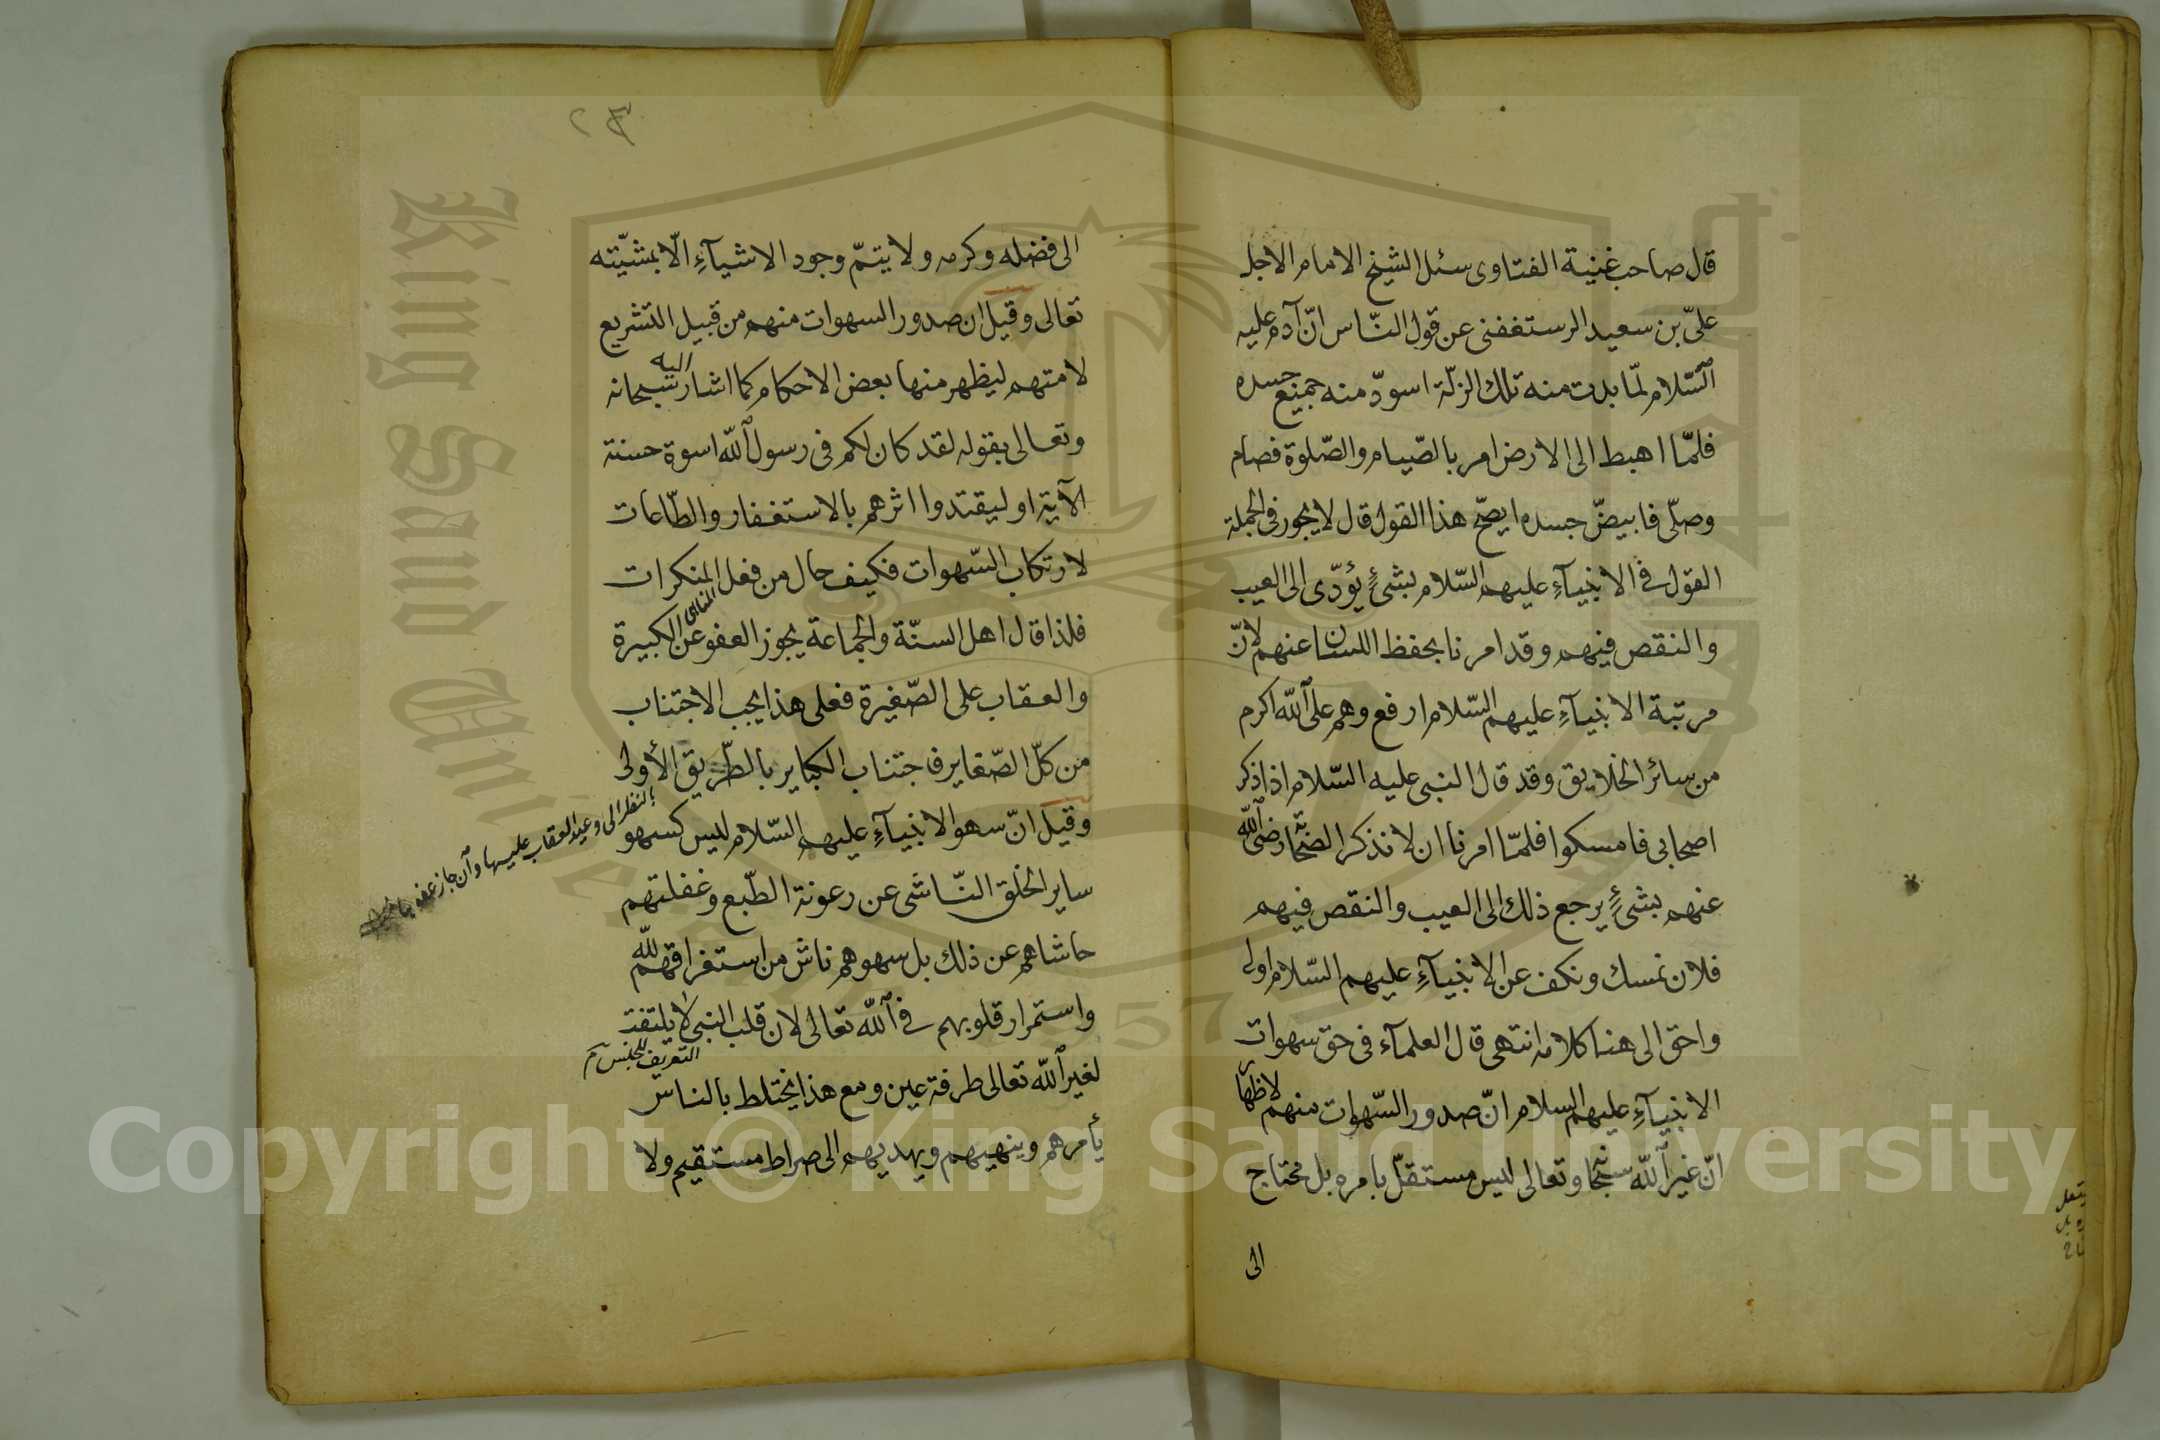 قال صاحب غنية الفتاوى سئل الشيخ الامام الاجل
علىّ بن سعيد الرستغفنى عن قول النّاس انّ آدم عليه
السّلام لمّا بدت منه تلك الزلّة اسودّ منه جميع جسده
فلمّا اهبط الى الارض امر بالصّيام والصّلوة فصام
وصلّى فابيضّ جسده ايصحّ هذا القول قال لا يجوز فى الجملة
القول فى الانبيآءِ عليهم السّلام بشئٍ يؤدّى الى العيب
والنقص فيهم وقد امرنا بحفظ اللسان عنهم لانّ
مرتبة الانبيآءِ عليهم السّلام ارفع وهم على اللّه اكرم
من سائر الخلايق وقد قال النبى عليه السّلام اذا ذكر
اصحابى فامسكوا فلمّا امرنا ان لا نذكر الصّحابة رضى اللّه
عنهم بشئٍ يرجع ذلك الى العيب والنقص فيهم
فلان نمسك ونكف عن الانبيآءِ عليهم السّلام اولى
واحق الى هنا كلامه انتهى قال العلمآء فى حق سهوات
الانبيآءِ عليهم السلام انّ صدور السّهوات منهم لاظهار
انّ غير اللّه سبحانه وتعالى ليس مستقلّ بامره بل محتاج
الى
٢٣
الى فضله وكرمه ولا يتمّ وجود الاشيآءِ الّا بمشيّته
تعالى وقيل ان صدور السهوات منهم من قبيل التشريع
لامتهم ليظهر منها بعض الاحكام كما اشار اليه سبحانه
وتعالى بقوله لقد كان لكم فى رسول اللّه اسوة حسنة
الآية او ليقتدوا اثرهم بالاستغفار والطّاعات
لارتكاب السّهوات فكيف حال من فعل المنكرات
المناهى
فلذا قال اهل السنّة والجماعة يجوز العفو عن الكبيرة
والعقاب على الصّغيرة فعلى هذا يجب الاجتناب
من كلّ الصّغاير فاجتناب الكباير بالطّريق الأولى
بالنظر الى وعيد العقاب عليها وان جاز عفوها
وقيل انّ سهو الانبيآءِ عليهم السّلام ليس كسهو
ساير الخلق النّاشى عن رعونة الطّبع وغفلتهم
حاشاهم عن ذلك بل سهوهم ناش من استغراقهم للّه
واستمرار قلوبهم فى اللّه تعالى لان قلب النبى لا يلتفت
التعريف للجنس م
لغير اللّه تعالى طرفة عين ومع هذا يختلط بالناس
يأمرهم وينهيهم ويهديهم الى صراط مستقيم ولا
King Saud University
1957
Copyright © King Saud University